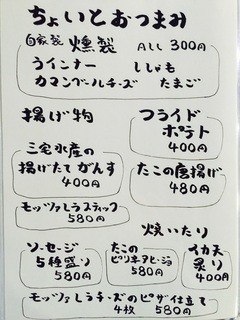 ちょいとおつまみ
自家製 燻製 ALL 300円
ウインナー ししゃも
カマンベールチーズ たまご
揚げ物
フライド
ポテト
400円
三宅水産の
揚げたて がんす
400円
たこの唐揚げ
480円
モッツァレラスティック
580円
焼いたり
ソーセージ
5種盛り
580円
たこの
580円
イカ天
炙り
400円
モッツァレラチーズのピザ仕立て
4枚 580円